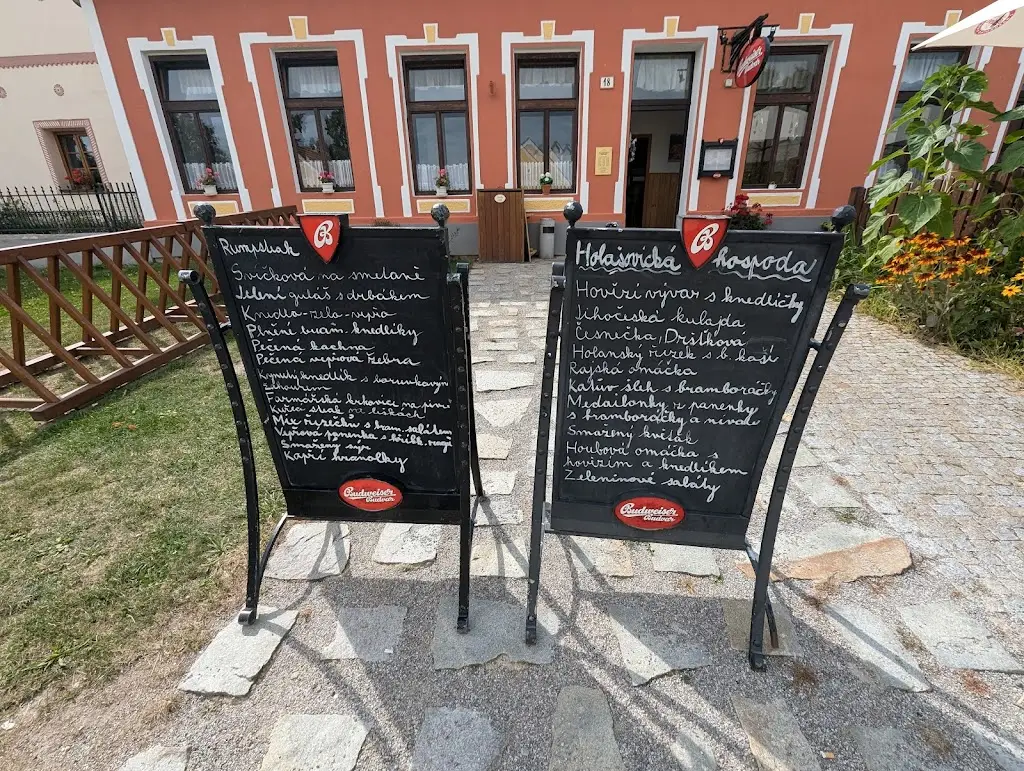 18
Rumpsteak
Svíčková na smetaně
Jelení guláš s drbákem
Knedla-zela-vepřa
Plněné bram. knedlíky
Pečená kachna
Pečená vepřová žebra
Kynutý knedlík s borůvkovým
Farmářská krkovice na pivu
Kuřecí steak na liškách
Mix řízečků s bram. salátem
Vepřová panenka s hříbk.
Smažený sýr
Kapří hranolky
Budweiser
Budvar
Holašovická hospoda
Hovězí vývar s knedlíčky
Jihočeská kulajda
Česnečka, Dršťková
Holanský řízek s b. kaší
Rajská omáčka
Katův šleh s bramboráčky
Medailonky z panenky
s bramboráčky a nivou
Smažený květák
Houbová omáčka s
hovězím a knedlíkem
Zeleninové saláty
Budweiser
Budvar